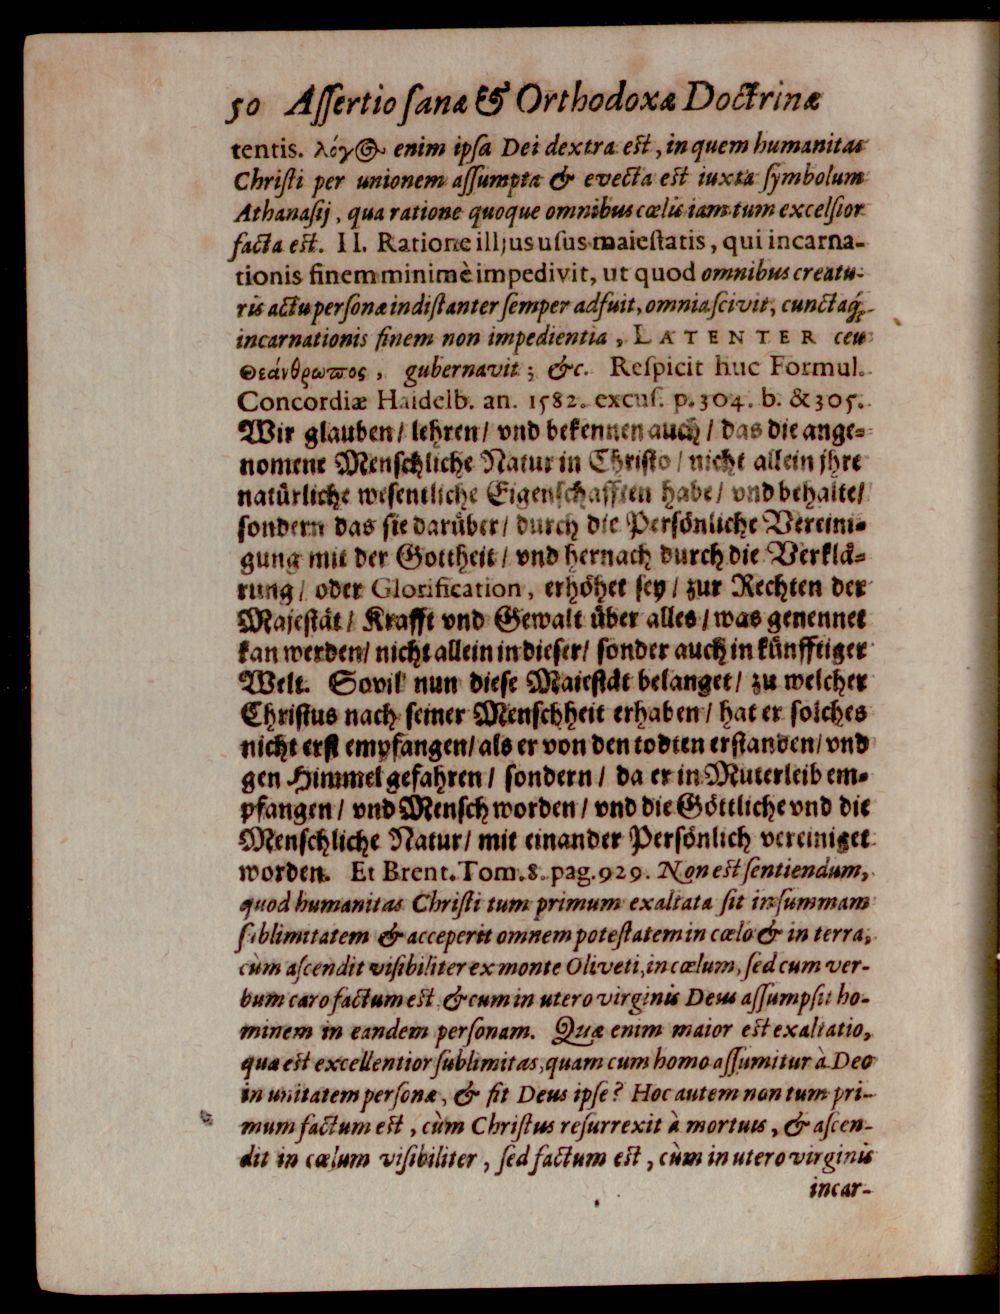 50 Aſſertio ſanæ & Orthodoxæ Doctrinæ
tentis. λόγος enim ipſa Dei dextra eſt, in quem humanitas
Chriſti per unionem aſſumpta & evecta eſt iuxta ſymbolum
Athanaſij, qua ratione quoque omnibus cœlis iam tum excelſior
facta eſt. II. Ratione illius uſus maieſtatis, qui incarna-
tionis finem minimè impedivit, ut quod omnibus creatu-
ris actu perſonæ indiſtanter ſemper adfuit, omnia ſcivit, cunctaq́;
incarnationis finem non impedientia, LATENTER ceu
Θεάνθρωπος, gubernavit; &c. Reſpicit huc Formul.
Concordiæ Haidelb. an. 1582. excuſ. p. 304. b. & 305.
Wir glauben/ lehren/ vnd bekennen auch/ das die ange-
nomene Menſchliche Natur in Chriſto/ nicht allein jhre
natürliche weſentliche Eigenſchafften habe/ vnd behalte/
ſondern das ſie darüber/ durch die Perſönliche Vereini-
gung mit der Gottheit/ vnd hernach durch die Verklä-
rung/ oder Glorification, erhöhet ſey/ zur Rechten der
Majeſtät/ Krafft vnd Gewalt über alles/ was genennet
kan werden/ nicht allein in dieſer/ ſonder auch in künfftiger
Welt. Sovil nun dieſe Maieſtät belanget/ zu welcher
Chriſtus nach ſeiner Menſchheit erhaben/ hat er ſolches
nicht erſt empfangen/ als er von den todten erſtanden/ vnd
gen Himmel gefahren/ ſondern/ da er in Muterleib em-
pfangen/ vnd Menſch worden/ vnd die Göttliche vnd die
Menſchliche Natur/ mit einander Perſönlich vereiniget
worden. Et Brent. Tom. 8. pag. 929. Non eſt ſentiendum,
quod humanitas Chriſti tum primum exaltata ſit in ſummam
ſublimitatem & acceperit omnem poteſtatem in cœlo & in terra,
cùm aſcendit viſibiliter ex monte Oliveti, in cœlum, ſed cum ver-
bum caro factum eſt & cum in utero virginis Deus aſſumpſit ho-
minem in eandem perſonam. Quæ enim maior eſt exaltatio,
quæ eſt excellentior ſublimitas, quam cum homo aſſumitur à Deo
in unitatem perſonæ, & fit Deus ipſe? Hoc autem non tum pri-
mum factum eſt, cùm Chriſtus reſurrexit à mortuis, & aſcen-
dit in cœlum viſibiliter, ſed factum eſt, cùm in utero virginis
incar-